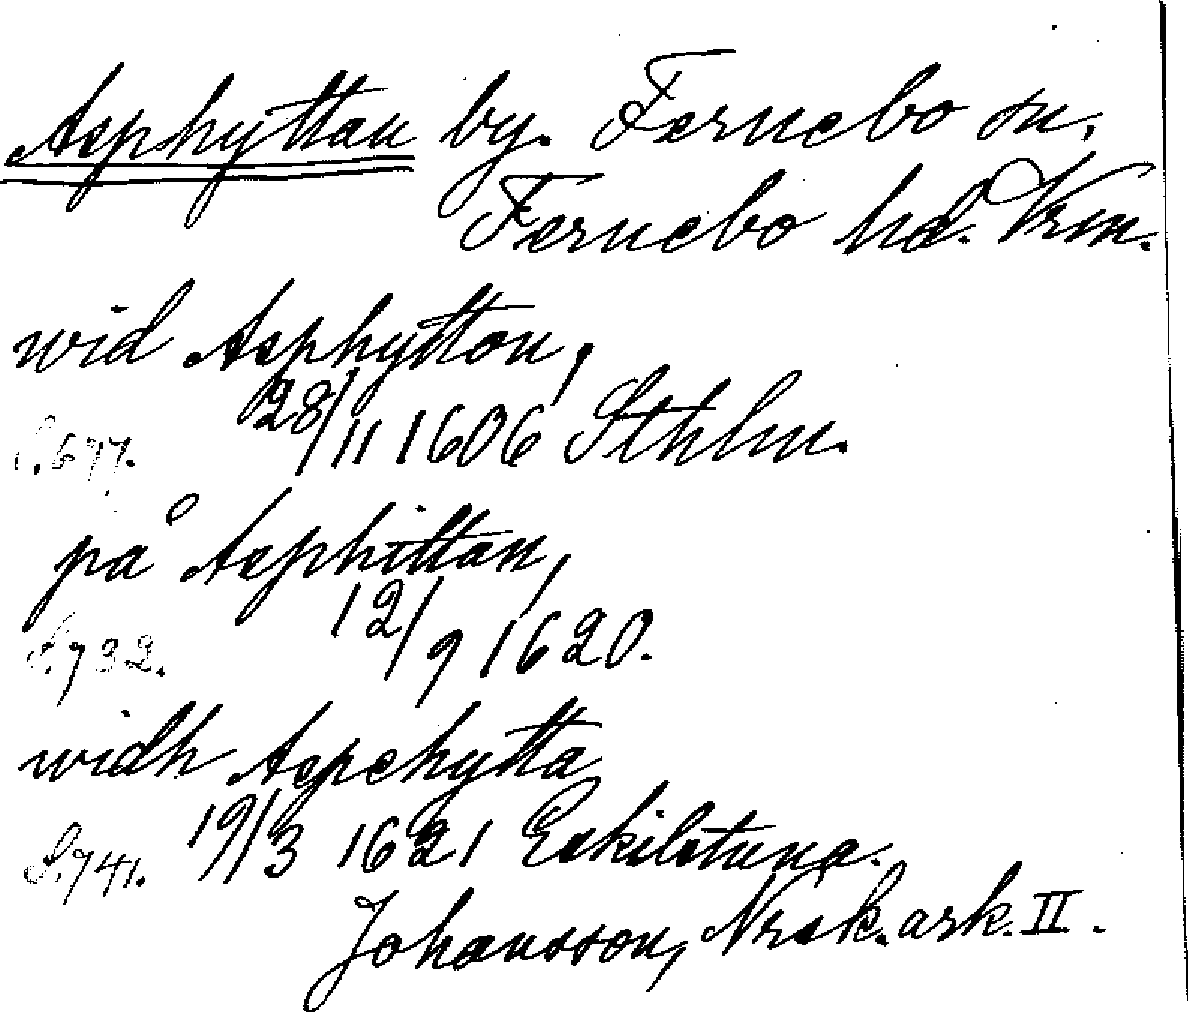 Asphyttan by. Fernebo sn.
Fernebo hd. Vrm.
wid Asphytton,
28/11 1606 Sthlm.
S. 677.
på Asphittan,
12/9 1620.
S. 732.
widh Aspehytta,
S. 741. 19/3 1621 Eskilstuna.
Johansson, Nrsk. ark. II.